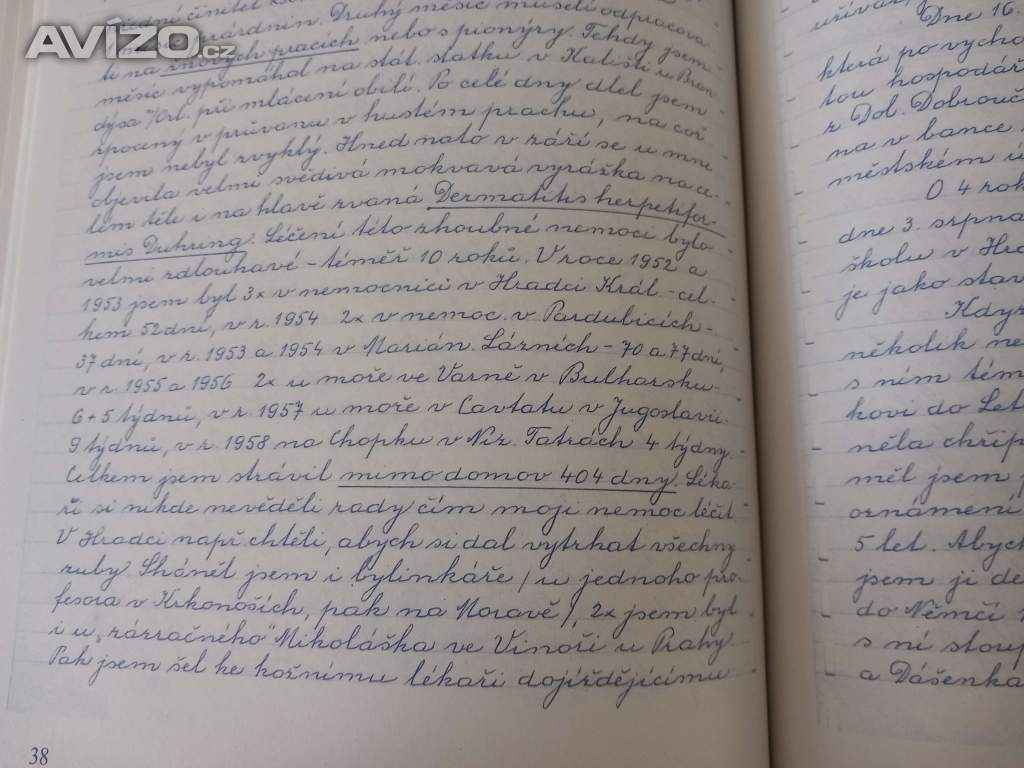 AVÍZO.cz
řídní činitel
prázdnin. Druhý měsíc museli odpracova-
ti na žňových pracích nebo s pionýry. Tehdy jsem
měsíc vypomáhal na stát. statku v Kališti u Bran-
dýsa n/Orl. při mlácení obilí. Po celé dny dlel jsem
zpocený v průvanu v hustém prachu, na což
jsem nebyl zvyklý. Ihned nato v září se u mne
objevila velmi svědivá mokvavá vyrážka na ce-
lém těle i na hlavě zvaná Dermatitis herpetifor-
mis Duhring. Léčení této zhoubné nemoci bylo
velmi zdlouhavé - téměř 10 roků. V roce 1952 a
1953 jsem byl 3x v nemocnici v Hradci Král. - cel-
kem 52 dní, v r. 1954 2x v nemoc. v Pardubicích -
37 dní, v r. 1953 a 1954 v Marián. Lázních - 70 a 77 dní,
v r. 1955 a 1956 2x u moře ve Varně v Bulharsku -
6+5 týdnů, v r. 1957 u moře v Cavtatu v Jugoslavii
9 týdnů, v r. 1958 na Chopku v Níz. Tatrách 4 týdny.
Celkem jsem strávil mimo domov 404 dny. Léka-
ři si nikde nevěděli rady čím moji nemoc léčit.
V Hradci např. chtěli, abych si dal vytrhat všechny
zuby. Sháněl jsem i bylinkáře /u jednoho pro-
fesora v Krkonoších, pak na Moravě/, 2x jsem byl
i u "zázračného" Mikoláška ve Vinoři u Prahy.
Pak jsem šel ke kožnímu lékaři dojíždějícímu
38
užívá
Dne 16.
která po vycho
tou hospodář
z Dol. Dobrouč
na v bance
městském ú
O 4 rok
dne 3. srpna
školu v Hra
je jako stav
Když
několik ne
s ním tém
kovi do Let
něla chřip
měl jsem
oznámení
5 let. Abych
jsem ji de
do Němčí
s ní stoup
a Dášenka